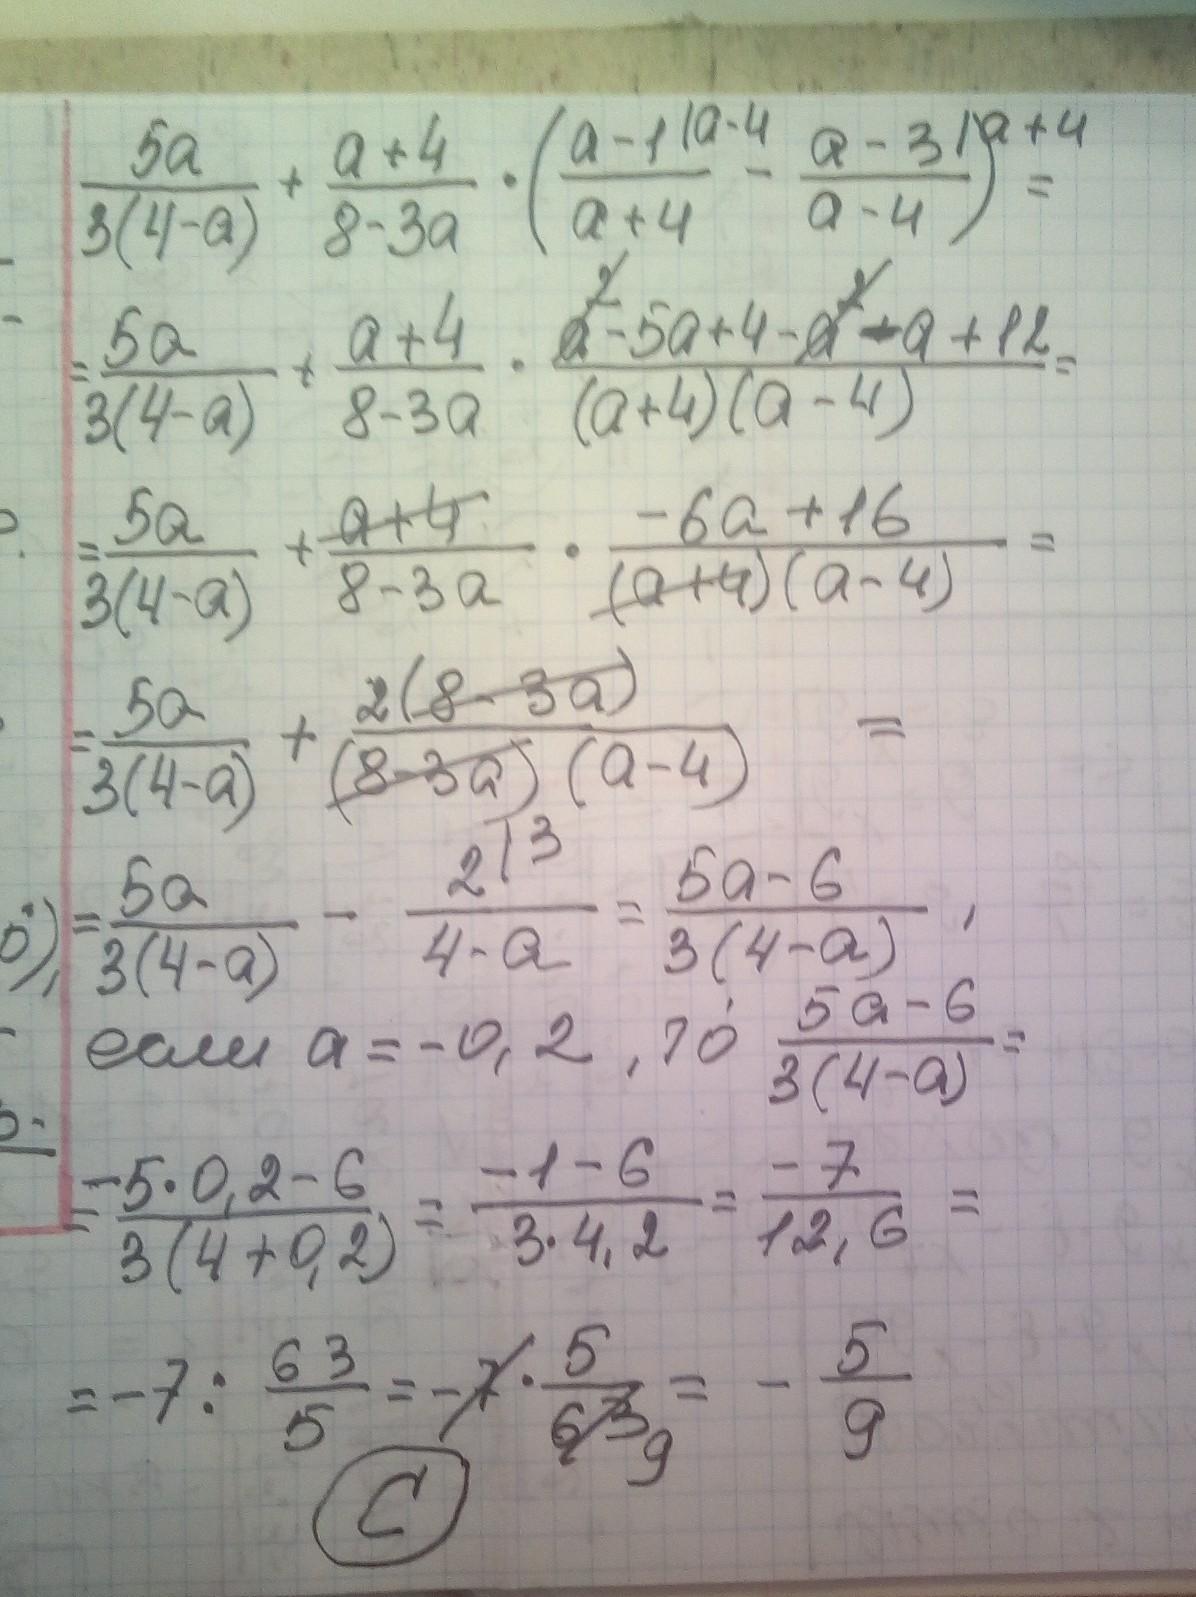 5a/3(4-a) + a+4/8-3a · (a-1|a-4/a+4 - a-3|a+4/a-4) =
= 5a/3(4-a) + a+4/8-3a · a²-5a+4-a²-a+12/(a+4)(a-4) =
= 5a/3(4-a) + a+4/8-3a · -6a+16/(a+4)(a-4) =
= 5a/3(4-a) + 2(8-3a)/(8-3a)(a-4) =
= 5a/3(4-a) - 2|3/4-a = 5a-6/3(4-a) ,
если a=-0,2 , то 5a-6/3(4-a) =
= -5·0,2-6/3(4+0,2) = -1-6/3·4,2 = -7/12,6 =
= -7 : 63/5 = -7 · 5/63 9 = - 5/9
C